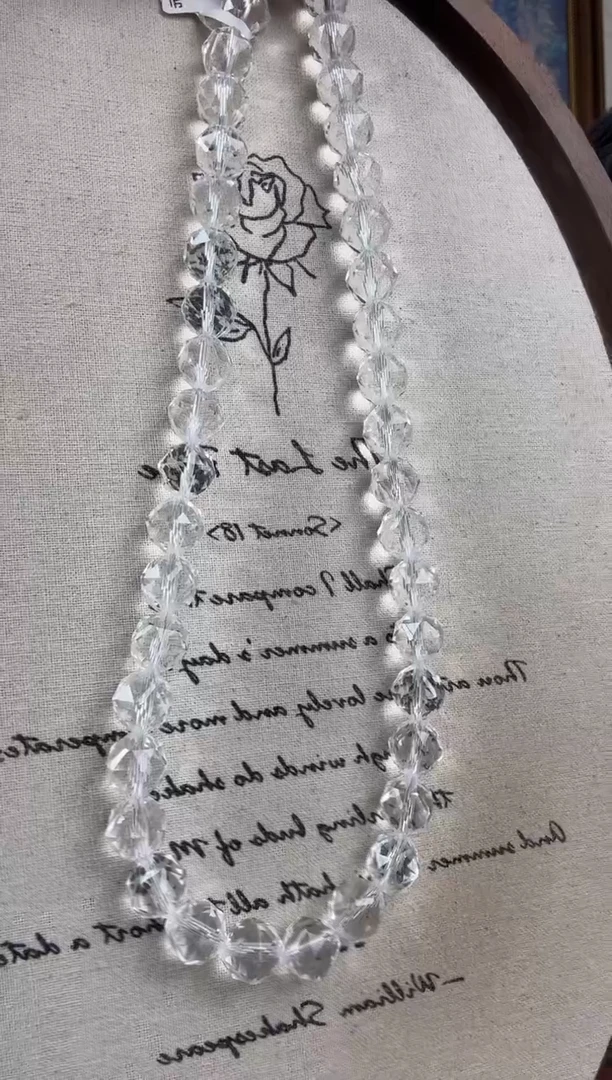 The Last
<Sonnet 18>
Shall I compare
a summer's day
Thou art lovely and more temperate
winds do shake
darling buds of M
And summer hath all short a date
—William Shakespeare